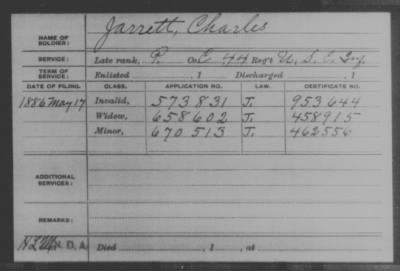 NAME OF SOLDIER: Jarrett, Charles
SERVICE: Late rank, P. Co. E 44 Reg't U.S.C. Inf.
TERM OF SERVICE: Enlisted , 1 Discharged , 1
DATE OF FILING. CLASS. APPLICATION NO. LAW. CERTIFICATE NO.
1886 May 17 Invalid, 573831 J. 953644
Widow, 658602 J. 458915
Minor, 670513 J. 462556
ADDITIONAL SERVICES:
REMARKS:
N. D. A. Died , 1 , at